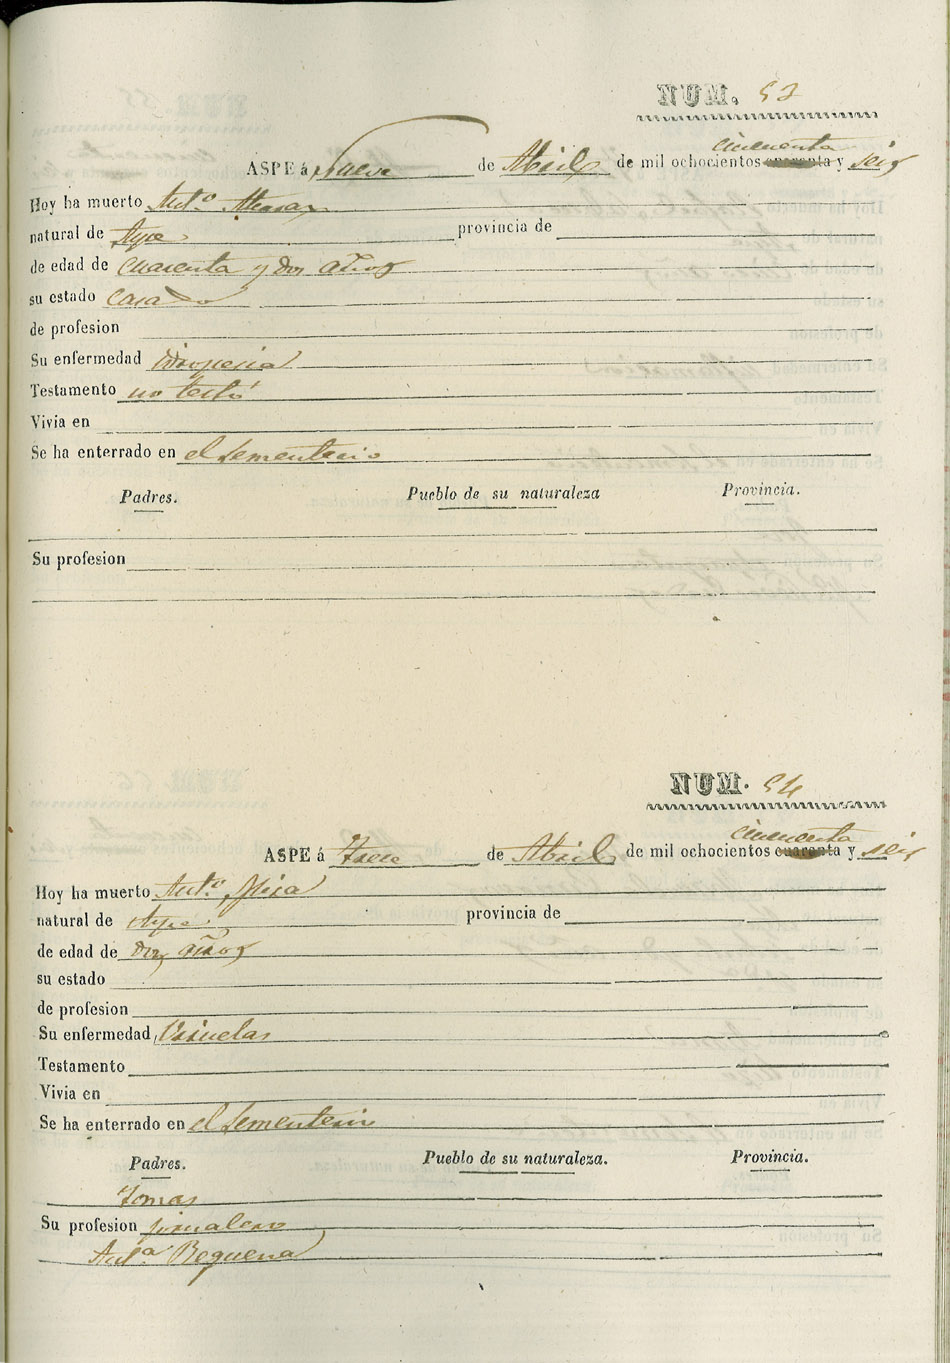 NUM. 53
cincuenta
ASPE á Nueve de Abril de mil ochocientos cuarenta y seis
Hoy ha muerto Ant.º
natural de Aspe provincia de
de edad de cuarenta y dos años
su estado casado
de profesion
Su enfermedad
Testamento no testó
Vivia en
Se ha enterrado en el Sementerio
Padres. Pueblo de su naturaleza Provincia.
Su profesion
NUM. 54
cincuenta
ASPE á Trece de Abril de mil ochocientos cuarenta y seis
Hoy ha muerto Ant.º
natural de Aspe provincia de
de edad de años
su estado
de profesion
Su enfermedad Viruelas
Testamento
Vivia en
Se ha enterrado en el Sementerio
Padres. Pueblo de su naturaleza. Provincia.
Tomas
Su profesion jornalero
Ant.ª Requena